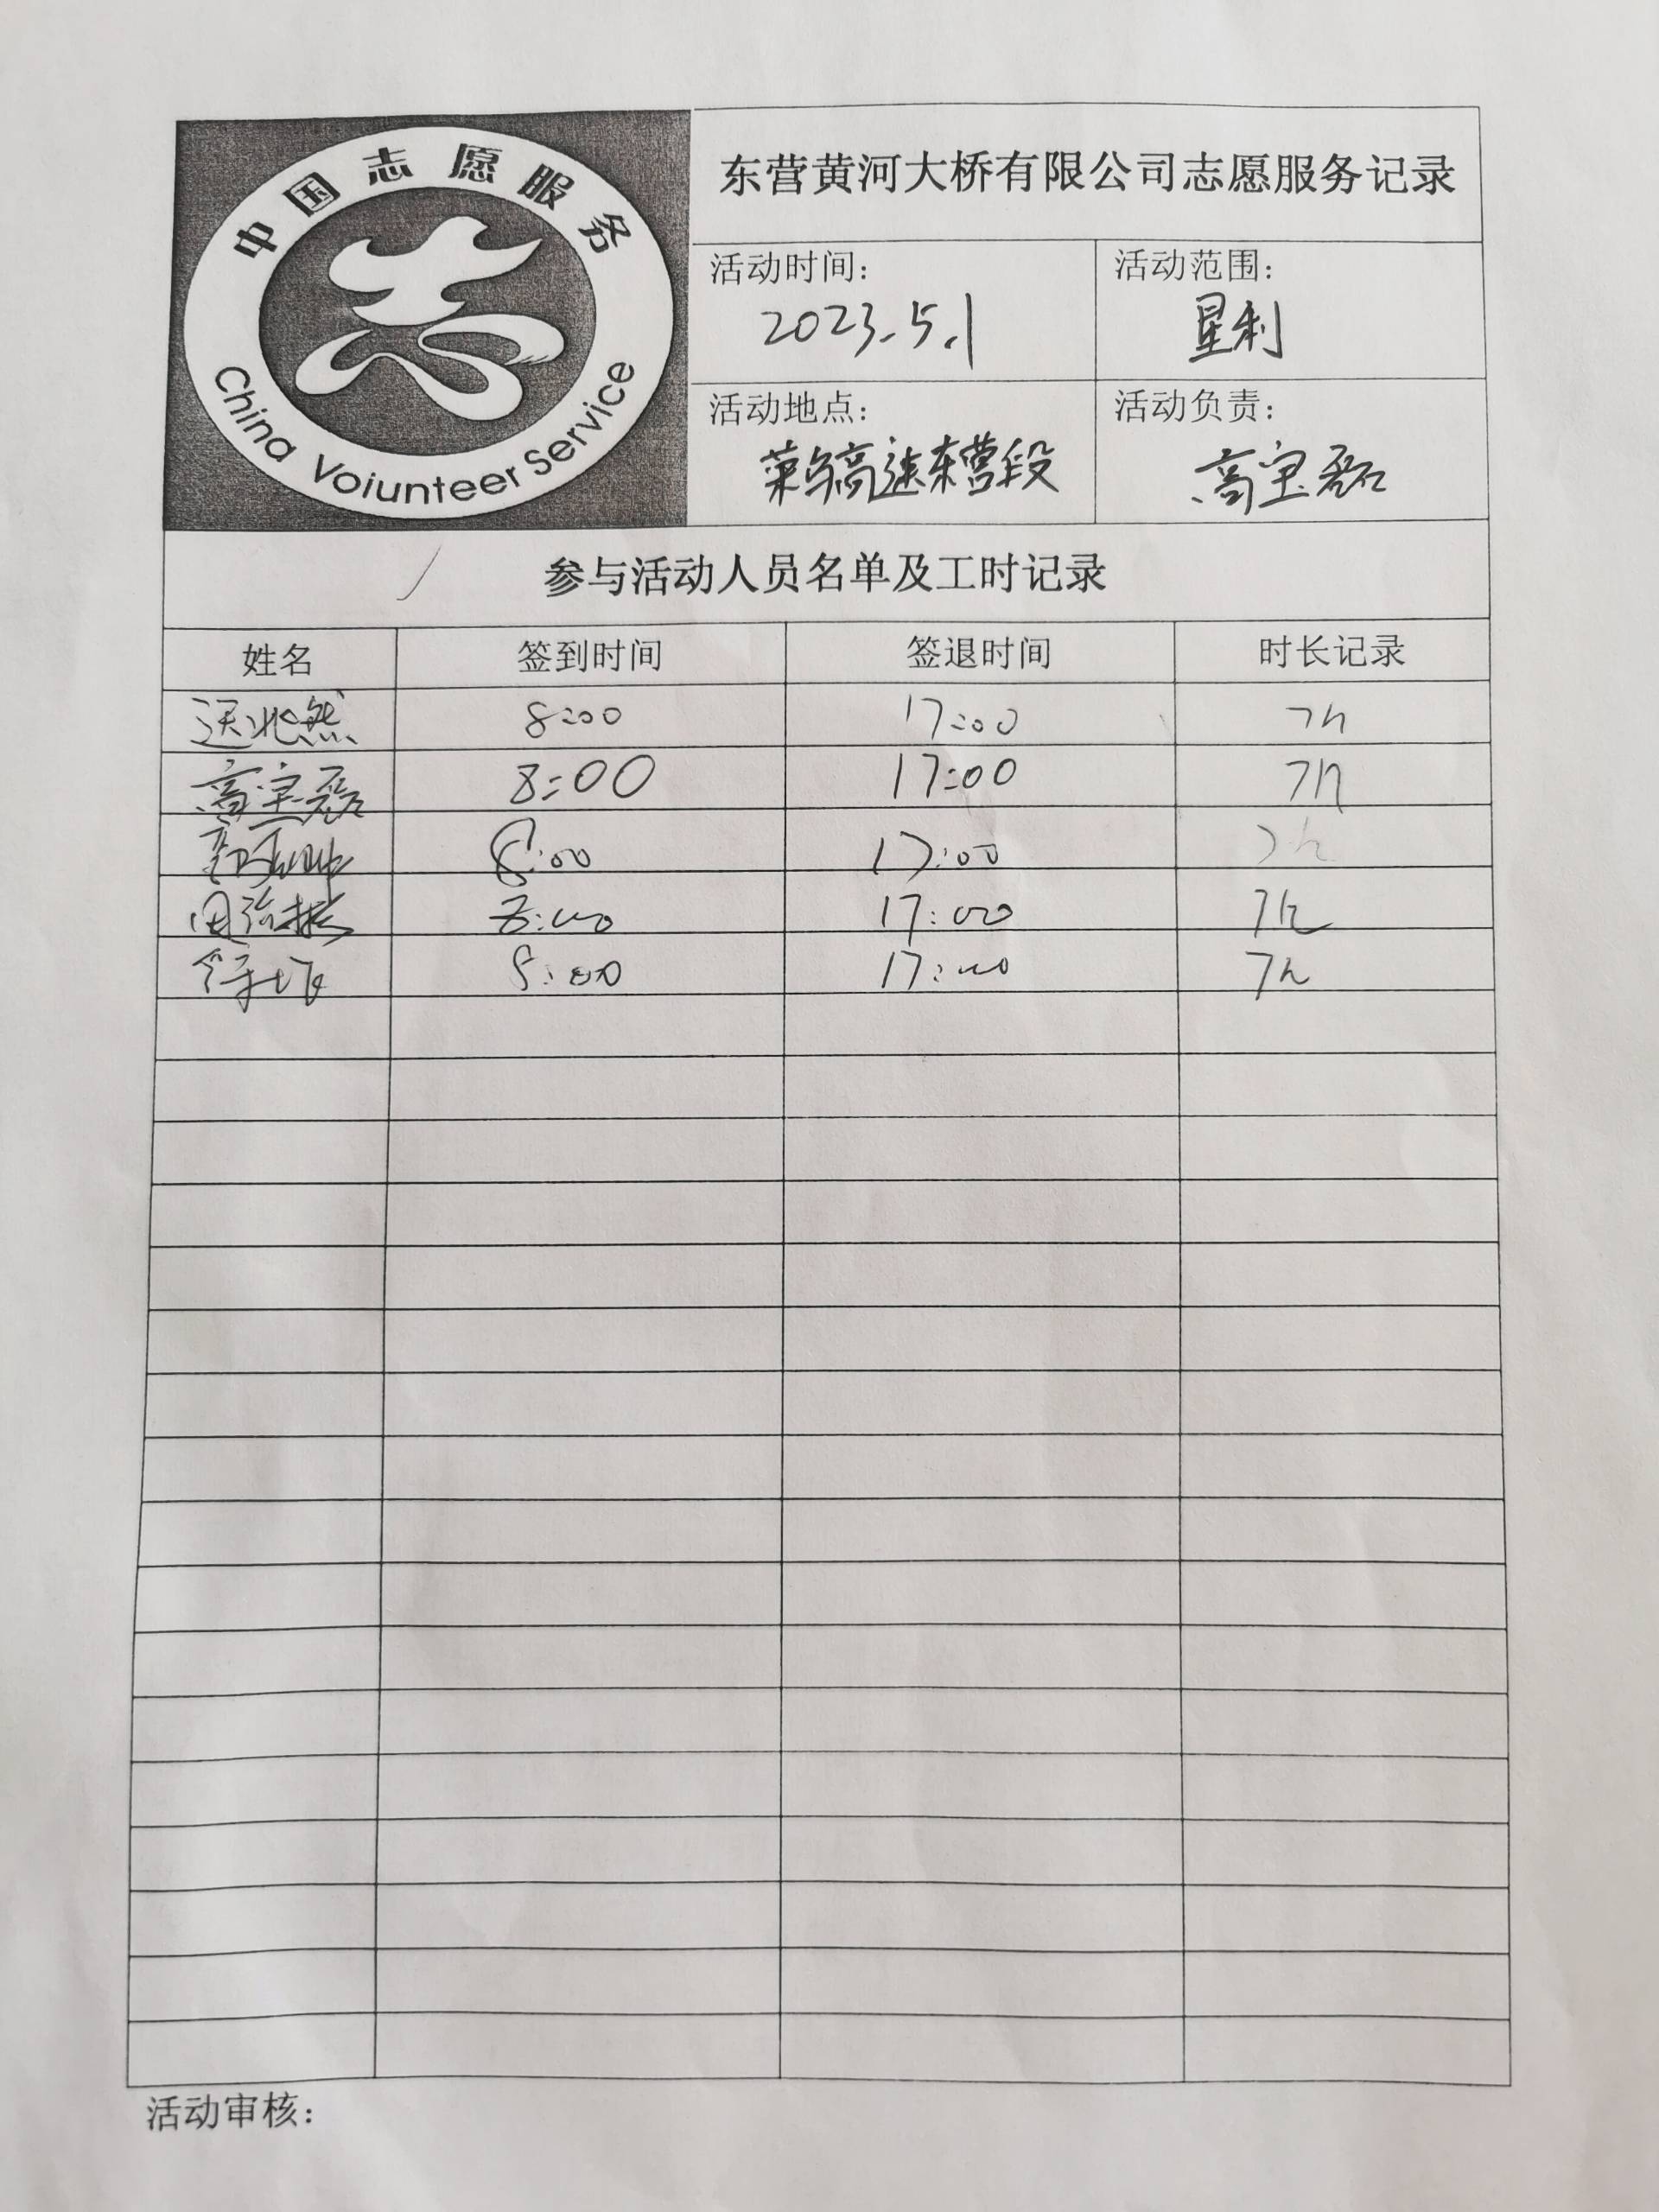 中国志愿服务
China Voiunteer Service
东营黄河大桥有限公司志愿服务记录
活动时间：
2023.5.1
活动范围：
垦利
活动地点：
荣乌高速东营段
活动负责：
高宝磊
参与活动人员名单及工时记录
姓名 签到时间 签退时间 时长记录
8:00 17:00 7h
高宝磊 8:00 17:00 7h
8:00 17:00 7h
8:00 17:00 7h
8:00 17:00 7h
活动审核：